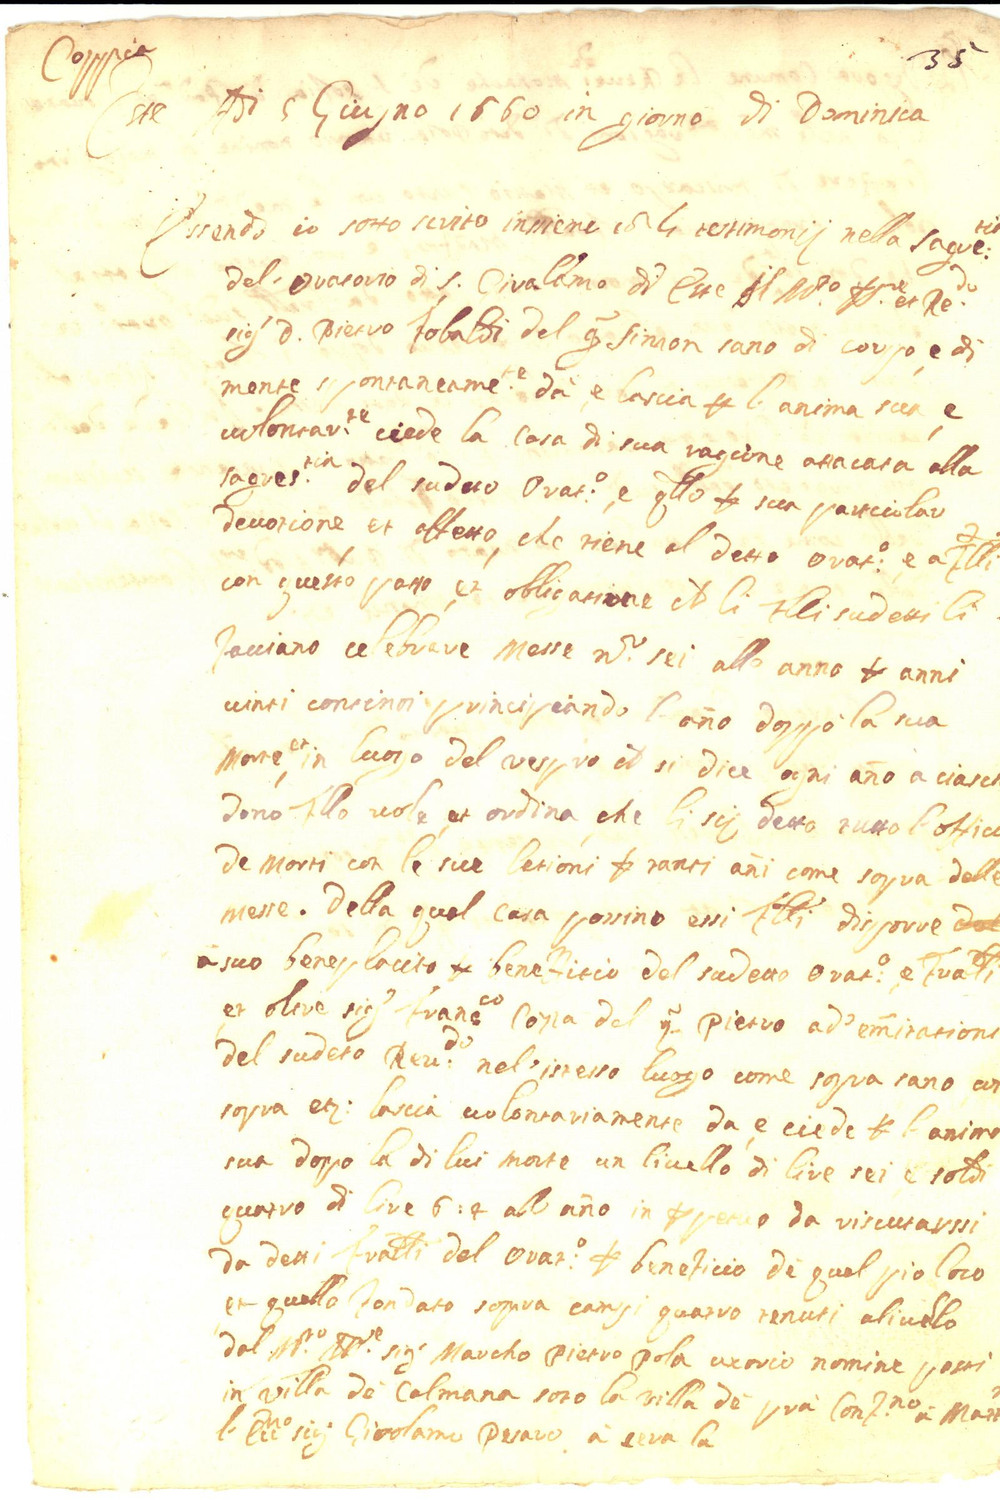 Coppia
35
Este Adi 5 Giugno 1660 in giorno di Dominica
Essendo io sotto scritto insieme co li testimonij nella sagres:tia
del Oratorio di S. Girolamo di Este il M.to R.do et Re.do
sig.r D. Pietro Tobaldi del q. Simon sano di corpo, e di
mente spontaneame.te dà, e lascia p l'anima sua, e
volontar.te ciede la casa di sua ragione attacata alla
sagres.tia del sudetto Orat.o, e q.llo p sua particolar
devotione et affetto, che tiene al detto Orat.o e a flli
con questo patto, et obligatione ch li flli sudetti li
facciano celebrare Messe n.o sei all anno p anni
vinti continui principiando l año doppò la sua
Morte, et in luogo del vespro ch si dice ogni año a ciasche
duno fllo vole, et ordina, che li sij detto tutto l'officio
de Morti con le sue letioni p tanti añi come sopra delle
messe. Della qual casa possino essi flli disporre
a suo beneplacito p benefitio del sudetto Orat.o, e fratlli
et oltre sig.r Fran.co Copa del q. Pietro ad emitatione
del sudeto Reu.do nel istesso luogo come sopra sano ut
sopra etc: lascia volontariamente da, e ciede p l'anima
sua dopo la di lui morte un livello di lire sei e soldi
quatro di lire 6:4 all año in ppetuo da riscutarssi
da detti fratlli del Orat.o p beneficio de quel pio loco
et quello fondato sopra campi quatro tenuti a livello
dal M.to sig.r Marcho Pietro Pola uxorio nomine posti
in villa de Calmana soto la villa de prà Conf.no à Matt
l sig.r Girolamo Pesaro à sera la